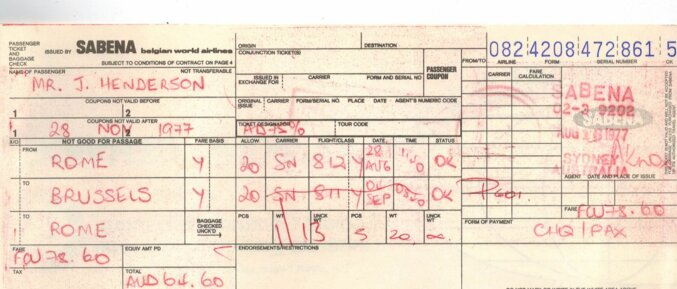 PASSENGER TICKET AND BAGGAGE CHECK
ISSUED BY SABENA belgian world airlines
SUBJECT TO CONDITIONS OF CONTRACT ON PAGE 4
ORIGIN DESTINATION
CONJUNCTION TICKET(S)
PASSENGER COUPON
FROM/TO
082 4208 472 861 5
AIRLINE FORM SERIAL NUMBER CK
NAME OF PASSENGER NOT TRANSFERABLE
MR. J. HENDERSON
ISSUED IN EXCHANGE FOR CARRIER FORM AND SERIAL NO
CARRIER FARE CALCULATION
COUPONS NOT VALID BEFORE
1 2
ORIGINAL ISSUE CARRIER FORM/SERIAL NO. PLACE DATE AGENT'S NUMERIC CODE
COUPONS NOT VALID AFTER
1 28 NOV 2 1977
TICKET DESIGNATOR TOUR CODE
AD75%
SABENA
SABENA
1977
SYDNEY
AUSTRALIA
X/O NOT GOOD FOR PASSAGE FARE BASIS ALLOW. CARRIER FLIGHT/CLASS DATE TIME STATUS
FROM ROME Y 20 SN 812 Y 28 AUG OK
TO BRUSSELS Y 20 SN 811 Y SEP OK
AGENT DATE AND PLACE OF ISSUE
TO ROME
BAGGAGE CHECKED UNCK'D
PCS WT UNCK WT PCS WT UNCK WT
1 13 5 20
FARE FCU 78.60
FORM OF PAYMENT
CHQ / PAX
FARE FCU 78.60
EQUIV AMT PD
ENDORSEMENTS/RESTRICTIONS
TAX
TOTAL AUD 64.60